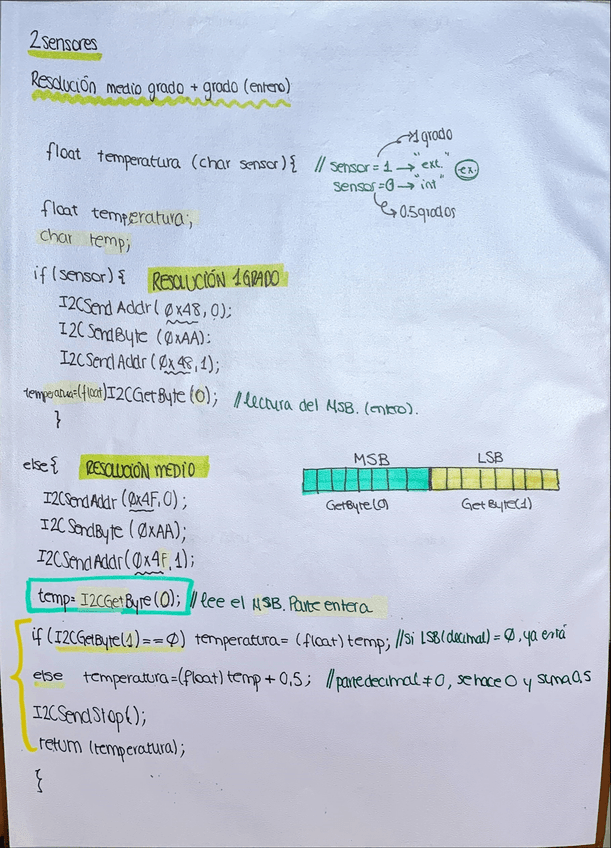 2 sensores
Resolución medio grado + grado (entero)
→1 grado
float temperatura (char sensor) { // sensor = 1 → "ext." ex.
sensor = 0 → "int"
→ 0.5 grados
float temperatura;
char temp;
if (sensor) { RESOLUCIÓN 1 GRADO
I2CSendAddr (0x48, 0);
I2CSendByte (0xAA):
I2CSendAddr (0x48, 1);
temperatura=(float)I2CGetByte (0); // lectura del MSB. (entero).
}
else { RESOLUCIÓN MEDIO
MSB LSB
I2CSendAddr (0x4F, 0);
GetByte(0) GetByte(1)
I2CSendByte (0xAA);
I2CSendAddr (0x4F, 1);
temp= I2CGetByte (0); // lee el MSB. Parte entera
if (I2CGetByte(1)==0) temperatura= (float) temp; // si LSB (decimal) = 0, ya está
else temperatura=(float) temp + 0,5; // parte decimal ≠ 0, se hace 0 y suma 0,5
I2CSendStop();
return (temperatura);
}